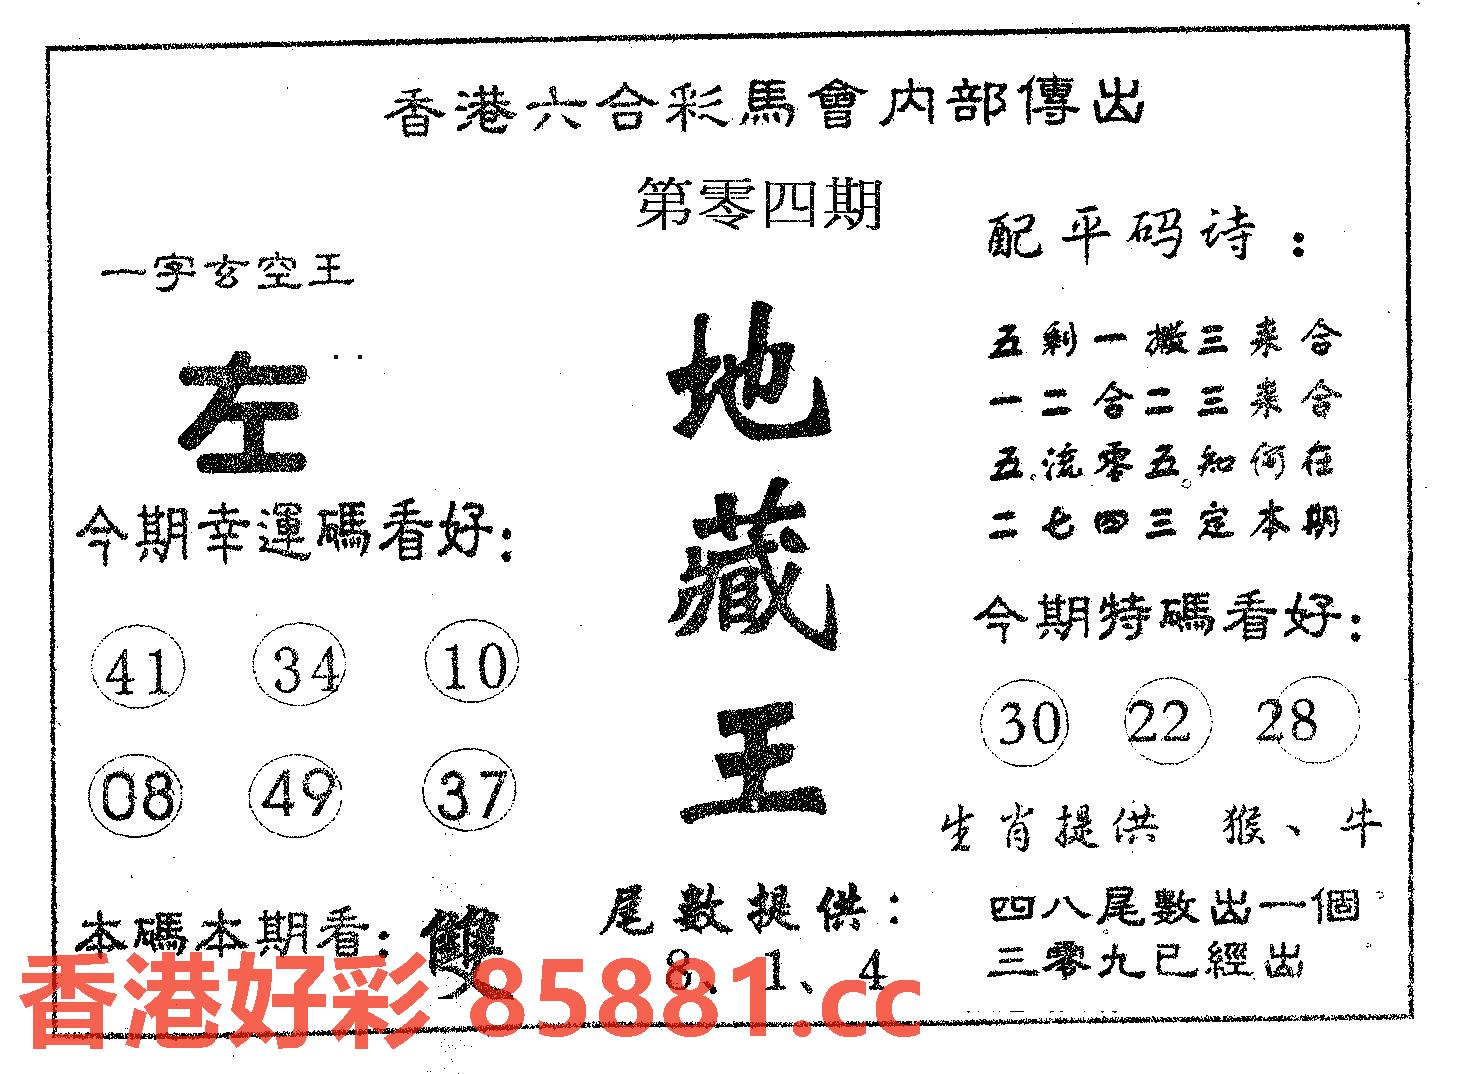 香港六合彩馬會内部傳出
第零四期
一字玄空王
左
今期幸運碼看好:
41 34 10
08 49 37
本碼本期看: 雙
地
藏
王
尾數提供:
8、1、4
配平码诗:
五剩一搬三来合
一二合二三来合
五流零五知何在
二七四三定本期
今期特碼看好:
30 22 28
生肖提供 猴、牛
四八尾數出一個
三零九已經出
香港好彩 85881.cc